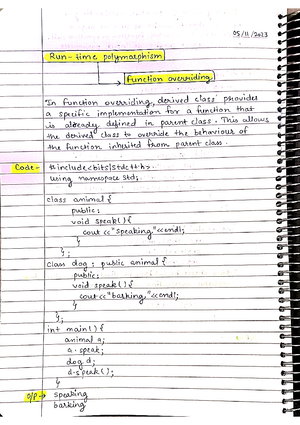 05/11/2023
Run-time polymorphism
Function overriding
In function overriding, derived class provides
a specific implementation for a function that
is already defined in parent class. This allows
the derived class to override the behaviour of
the function inherited from parent class.
Code- #include<bits/stdc++.h>
using namespace std;
class animal {
public:
void speak() {
cout<<"speaking"<<endl;
}
};
class dog : public animal {
public:
void speak() {
cout<<"barking"<<endl;
}
};
int main() {
animal a;
a.speak;
dog d;
d.speak();
}
O/P→ speaking
barking